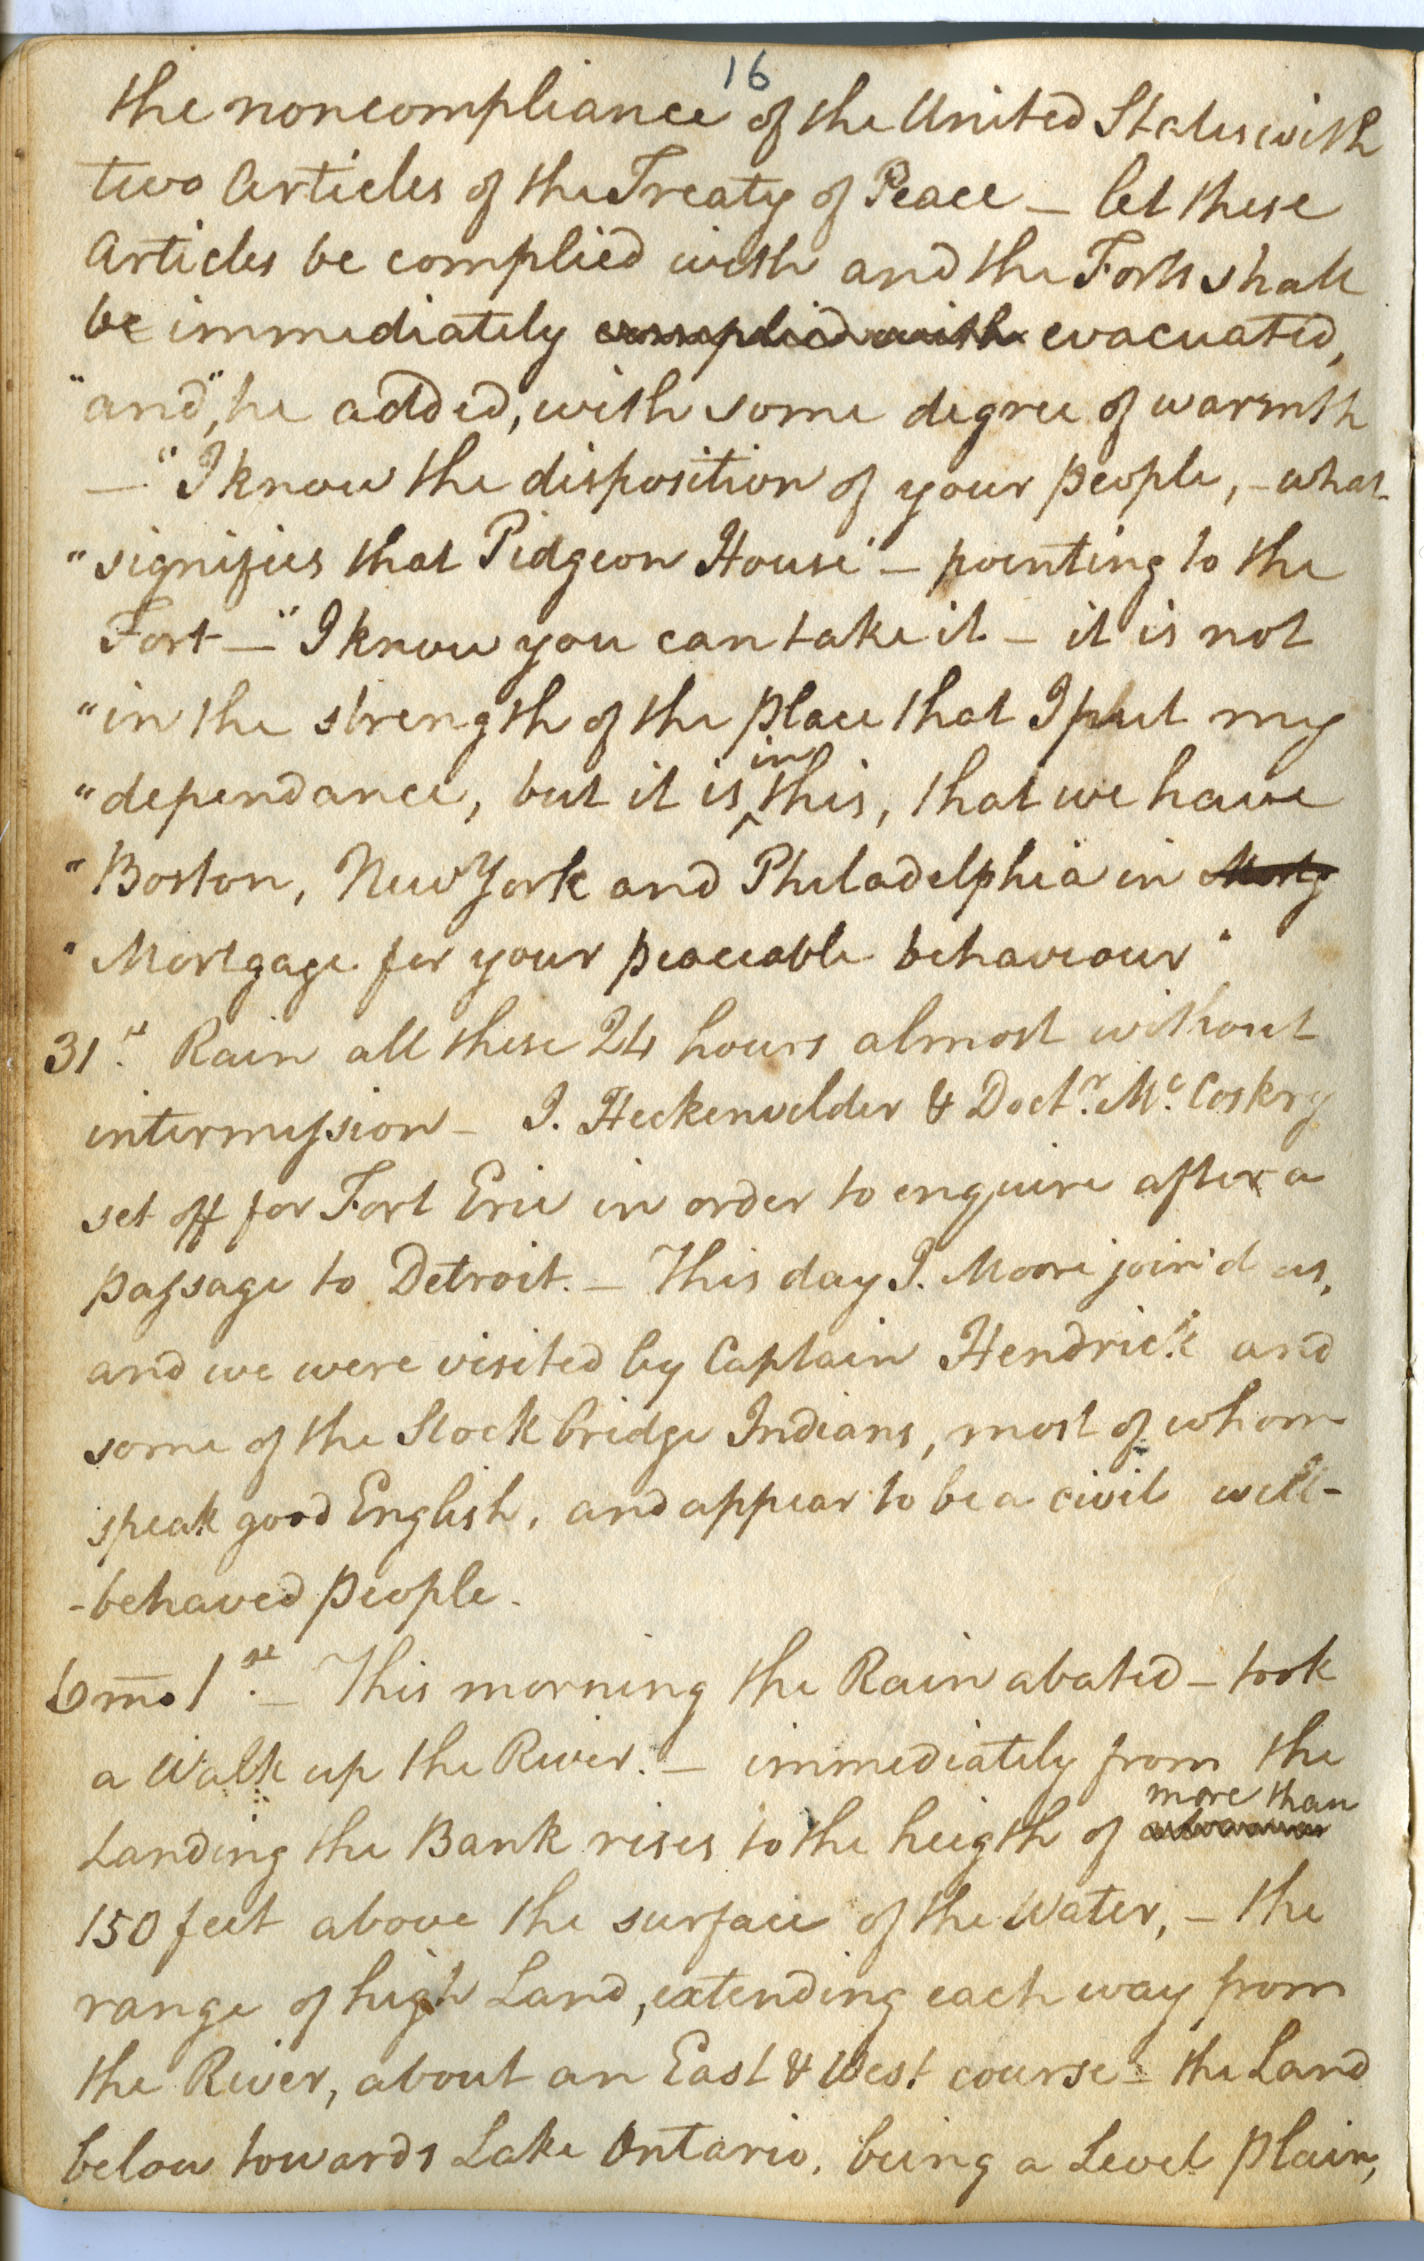 16
the noncompliance of the United States with
two Articles of the Treaty of Peace – let these
Articles be complied with and the Forts shall
be immediately complied with evacuated,
"and", he added, with some degree of warmth
—"I know the disposition of your people, – what
"signifies that Pidgeon House" – pointing to the
Fort – "I know you can take it – it is not
"in the strength of the place that I put my
"dependance, but it is in this, that we have
"Boston, New York and Philadelphia in Mortg
"Mortgage for your peaceable behaviour"
31st. Rain all these 24 hours almost without
intermission – J. Heckenwelder & Doctr. Mc. Coskry
set off for Fort Erie in order to enquire after a
passage to Detroit. – This day J. Moore join'd us,
and we were visited by Captain Hendrick and
some of the Stockbridge Indians, most of whom
speak good English, and appear to be a civil well-
-behaved people.
6mo. 1st. – This morning the Rain abated – took
a Walk up the River. – immediately from the
more than
Landing the Bank rises to the heigth of
150 feet above the surface of the Water, – the
range of high Land, extending each way from
the River, about an East & West course – the Land
below towards Lake Ontario, being a Level plain,